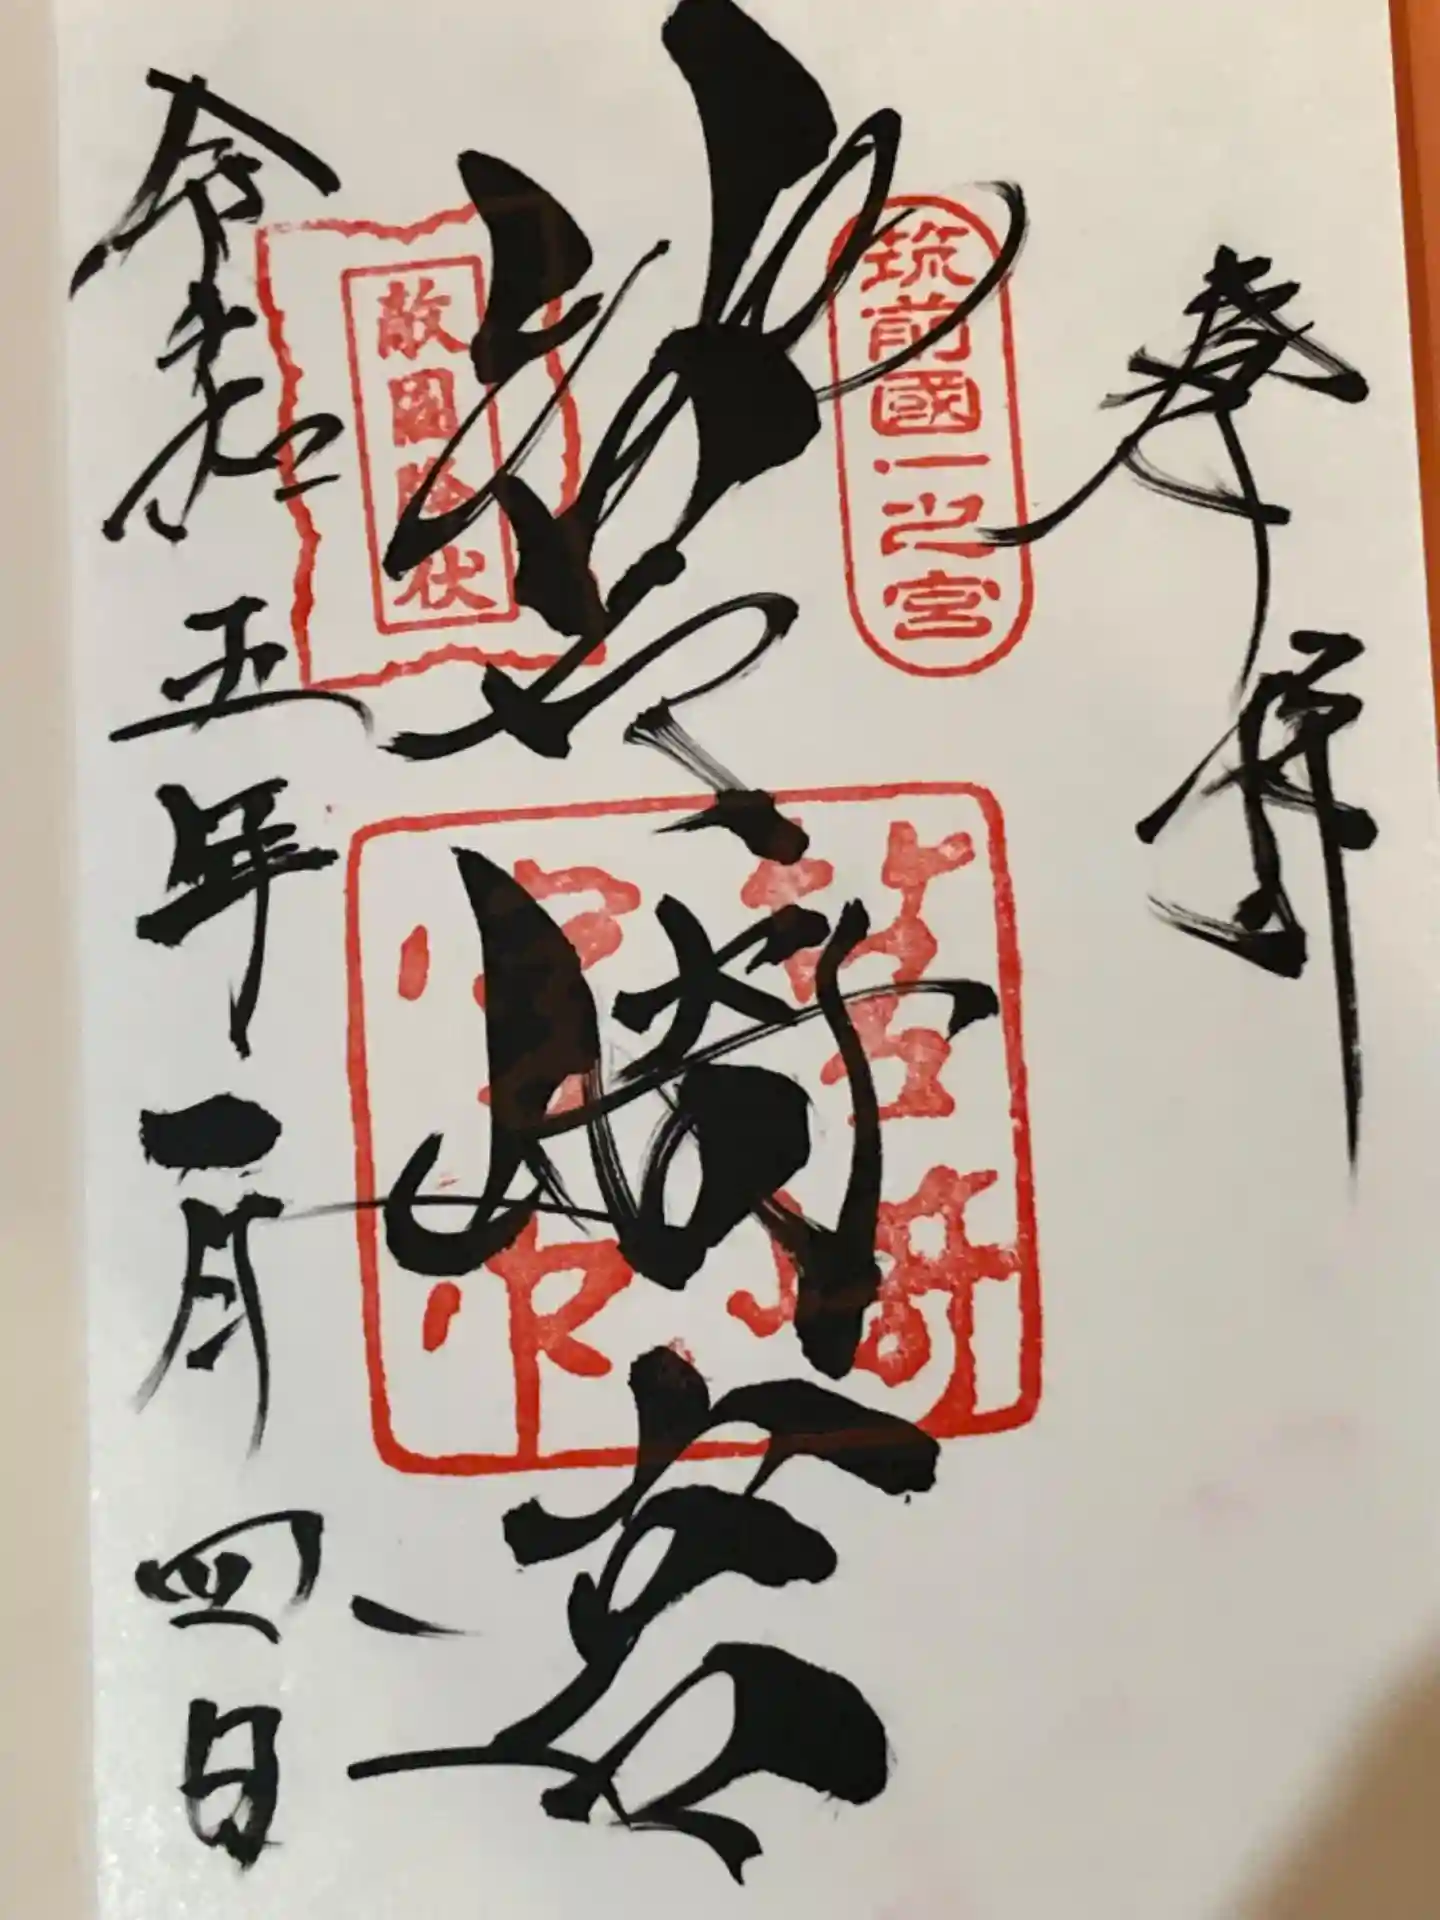 奉拝
筑前國一之宮
筥崎宮
敵國降伏
令和五年一月四日